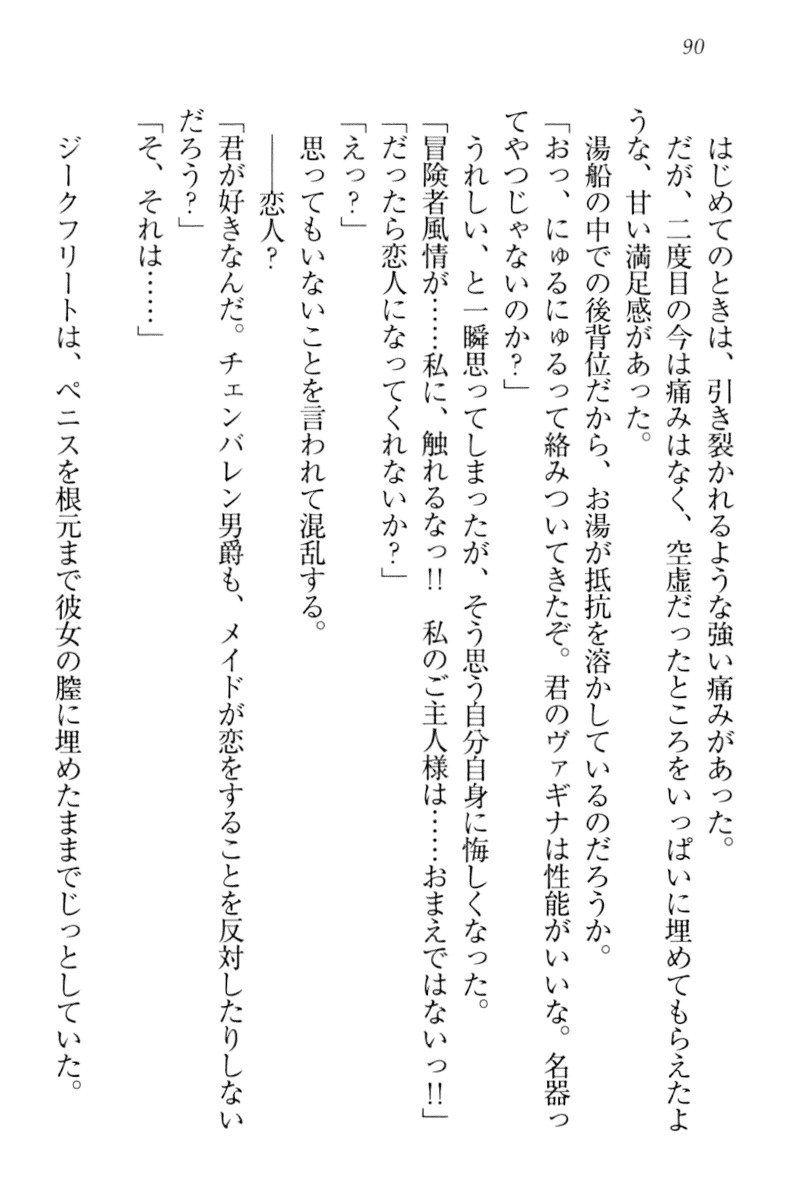 90
はじめてのときは、引き裂かれるような強い痛みがあった。
だが、二度目の今は痛みはなく、空虚だったところをいっぱいに埋めてもらえたよ
うな、甘い満足感があった。
湯船の中での後背位だから、お湯が抵抗を溶かしているのだろうか。
「おっ、にゅるにゅるって絡みついてきたぞ。君のヴァギナは性能がいいな。名器っ
てやつじゃないのか？」
うれしい、と一瞬思ってしまったが、そう思う自分自身に悔しくなった。
「冒険者風情が……私に、触れるなっ!!　私のご主人様は……おまえではないっ!!」
「だったら恋人になってくれないか？」
「えっ？」
思ってもいないことを言われて混乱する。
――恋人？
「君が好きなんだ。チェンバレン男爵も、メイドが恋をすることを反対したりしない
だろう？」
「そ、それは……」
ジークフリートは、ペニスを根元まで彼女の膣に埋めたままでじっとしていた。